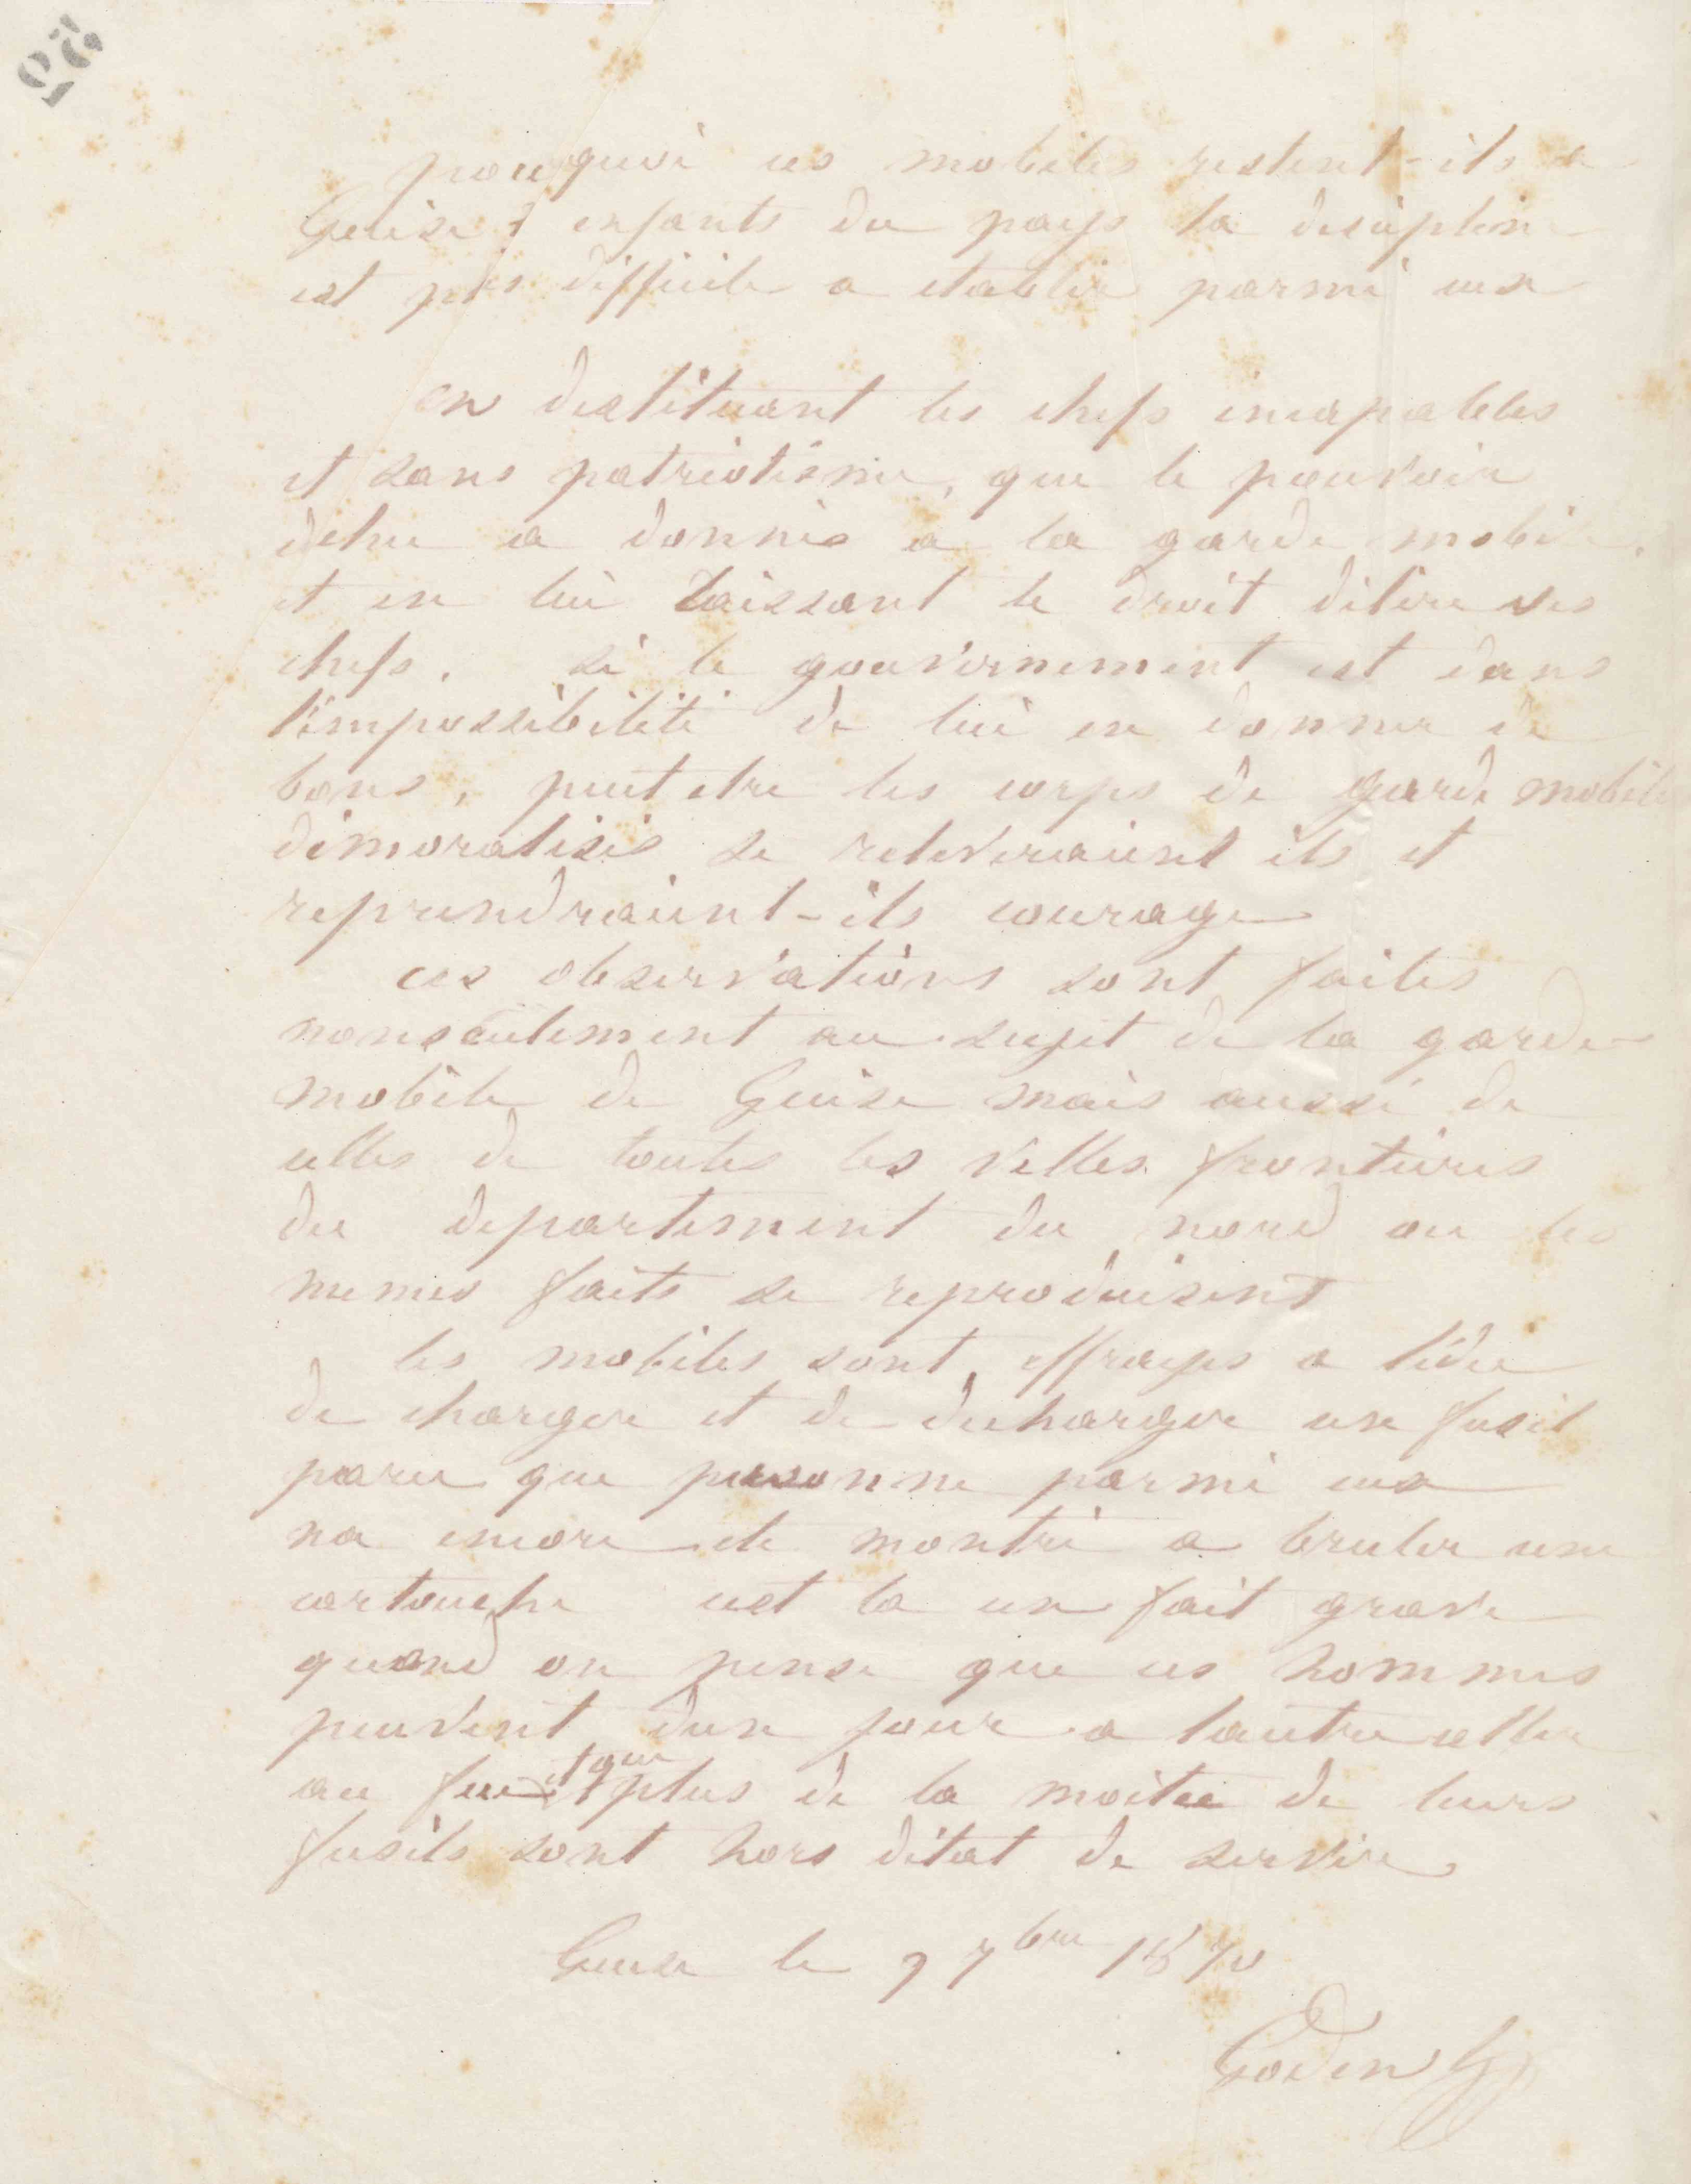 95
pourquoi ces mobiles restent-ils a
Guise ? enfants du pays la discipline
est plus difficile a etablir parmi eux
en destituant les chefs incapables
et sans patriotisme, que le pouvoir
dechu a donnés a la garde mobile,
et en lui laissant le droit délire ses
chefs. si le gouvernement est dans
l'impossibilité de lui en donner de
bons, peut etre les corps de garde mobile
démoralisés se releveraient ils et
reprendraient-ils courage
ces observations sont faites
nonseulement au sujet de la garde
mobile de Guise mais aussi de
celles de toutes les villes frontières
du departement du nord ou les
memes faits se reproduisent
les mobiles sont effrayes a lidée
de charger et de decharger un fusil
parce que personne parmi eux
na encore ete montré a bruler une
cartouche cest la un fait grave
quand on pense que ces hommes
peuvent dun jour a lautre aller
au feu et que plus de la moitée de leurs
fusils sont hors détat de servir
Guise le 9 7bre 1870
Godin